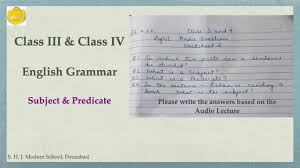 Class III & Class IV
English Grammar
Subject & Predicate
Class 3 and 4
English Audio Questions
Worksheet 2
Q1 In which two parts can a sentence
be divided?
Q2 What is a Subject?
Q3 What is a Predicate?
Q4 In the sentence - is reading a
book. What is the subject?
Please write the answers based on the
Audio Lecture
S. H. J. Modern School, Firozabad